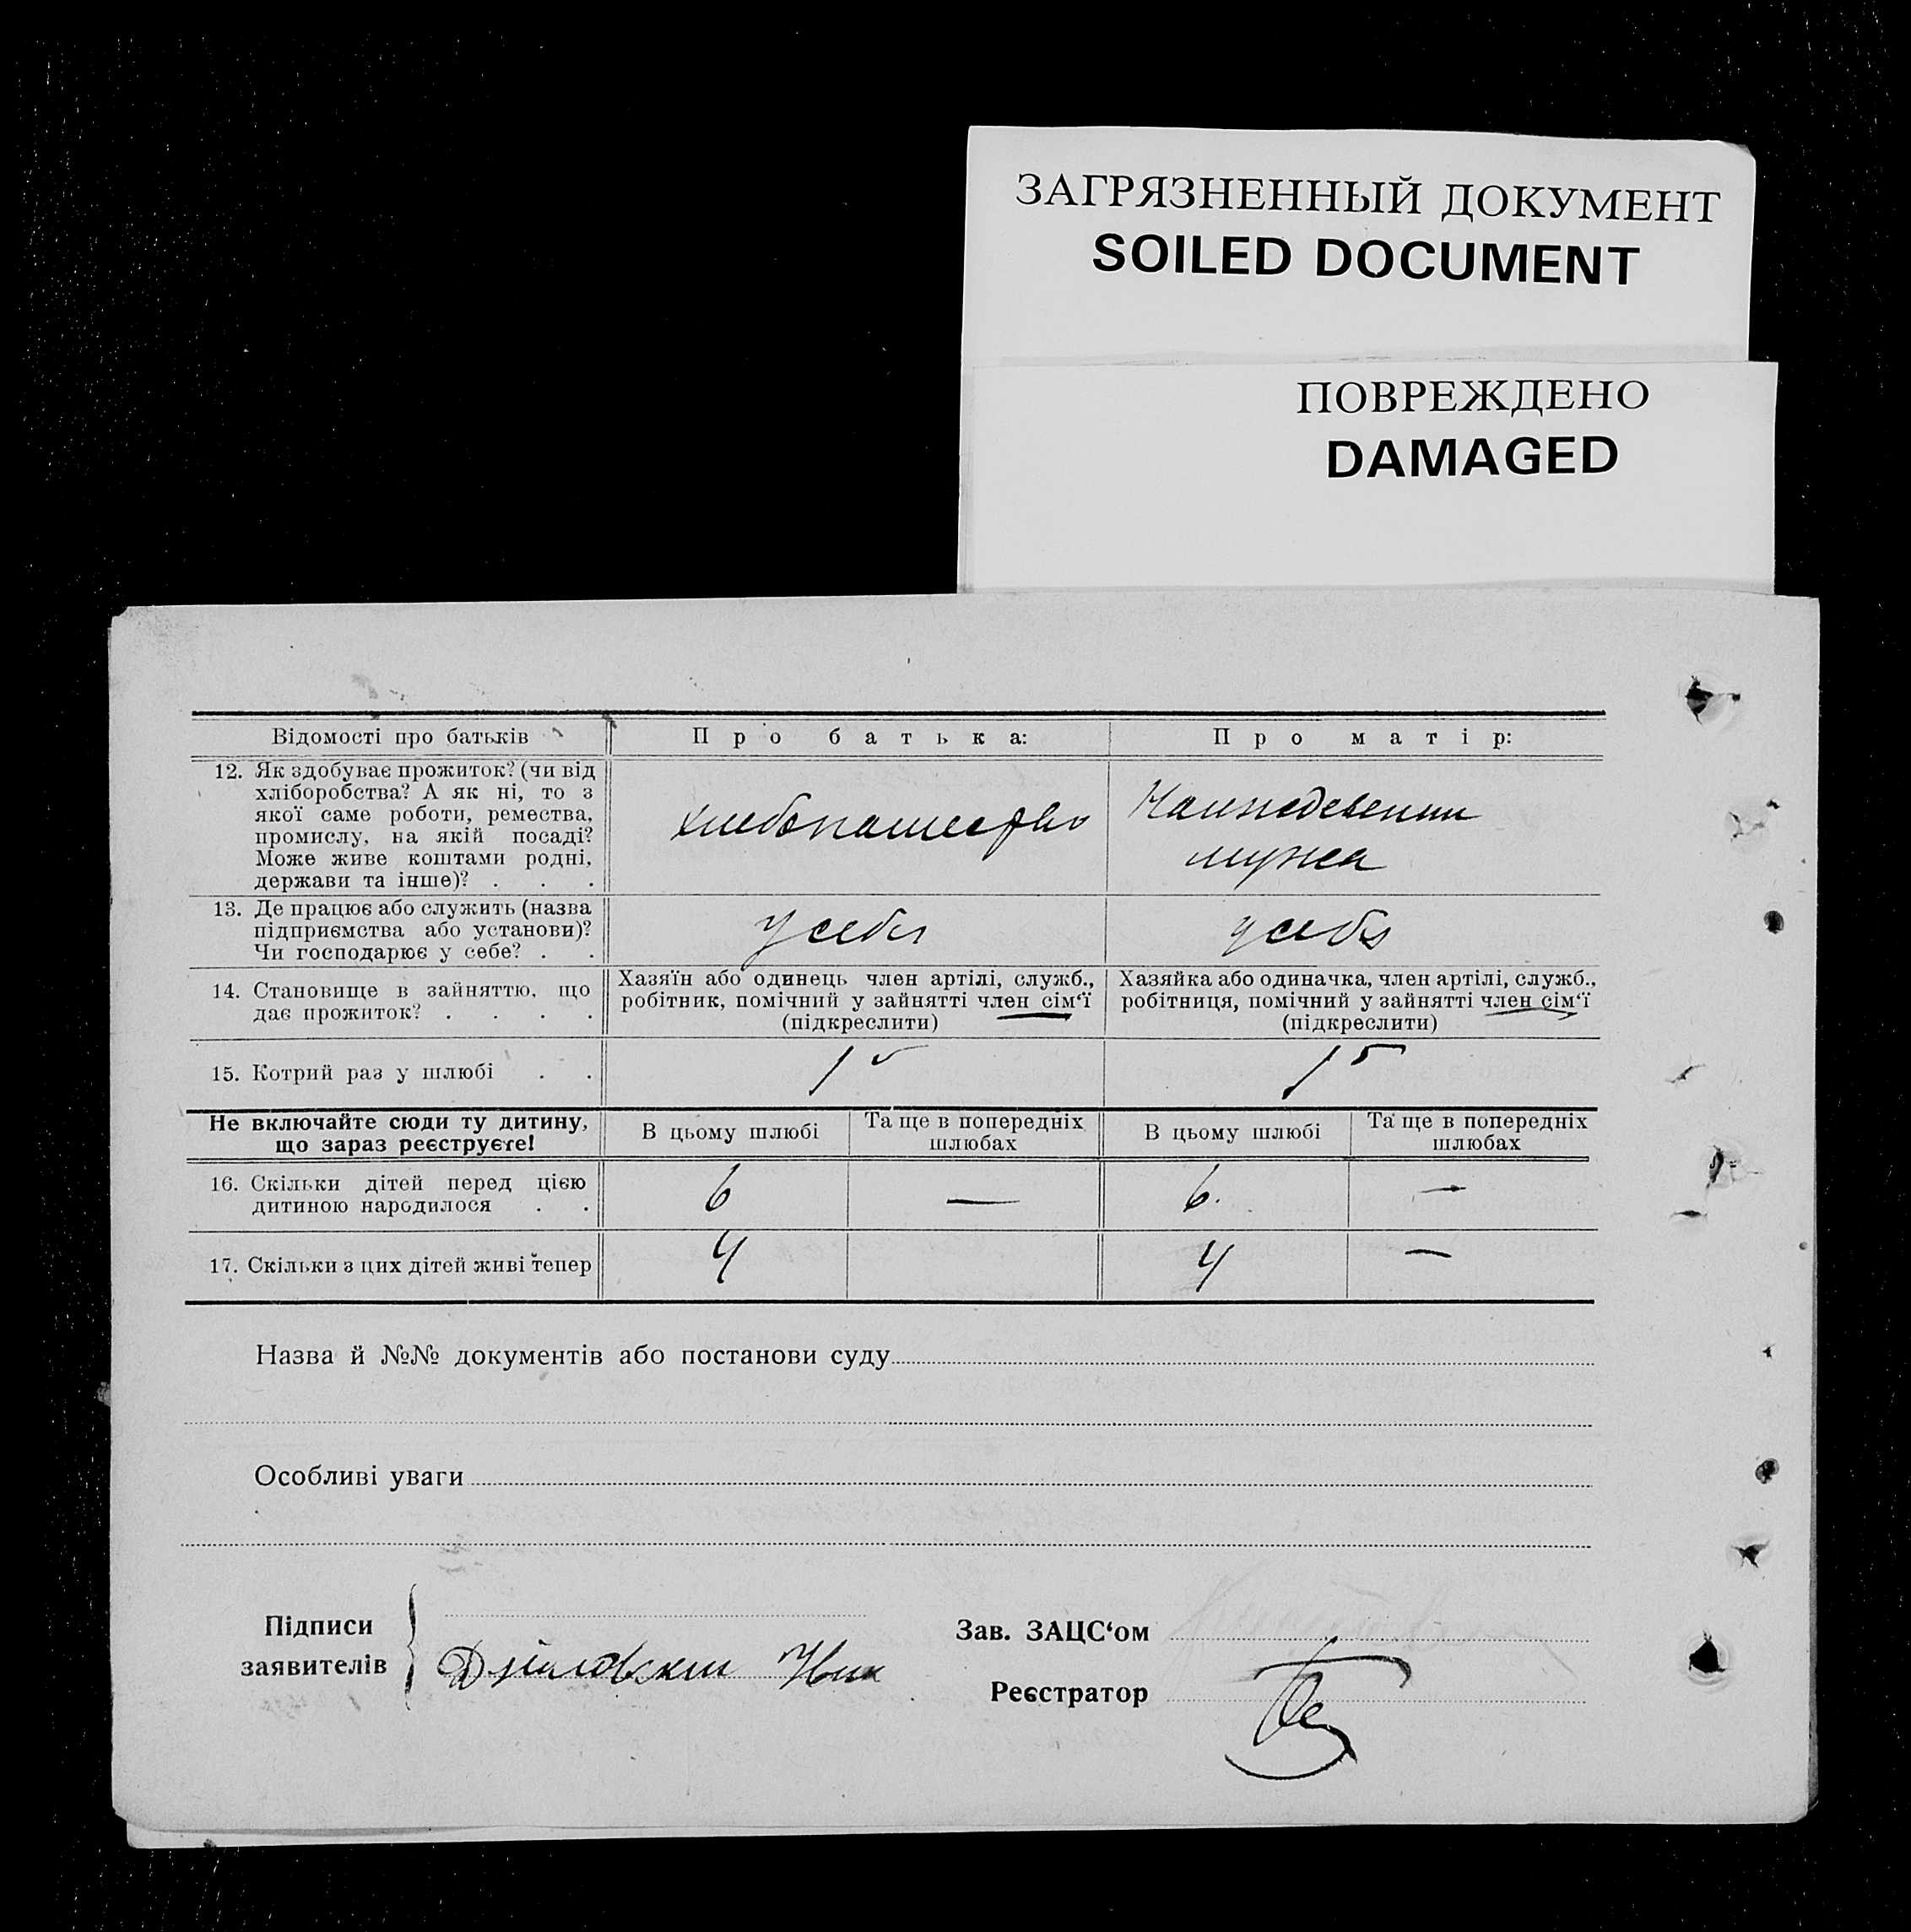 ЗАГРЯЗНЕННЫЙ ДОКУМЕНТ
SOILED DOCUMENT
ПОВРЕЖДЕНО
DAMAGED
Відомості про батьків
Про батька:
Про матір:
12. Як здобуває прожиток? (чи від
хліборобства? А як ні, то з
якої саме роботи, ремества,
промислу, на якій посаді?
Може живе коштами родні,
держави та інше)? . . .
хлебопашество
На иждевении
мужа
13. Де працює або служить (назва
підприємства або установи)?
Чи господарює у себе? . .
у себя
у себя
14. Становище в зайняттю, що
дає прожиток? . . . .
Хазяїн або одинець член артілі, служб.,
робітник, помічний у зайнятті член сім‘ї
(підкреслити)
Хазяйка або одиначка, член артілі, служб.,
робітниця, помічний у зайнятті член сім‘ї
(підкреслити)
15. Котрий раз у шлюбі . .
1
1
Не включайте сюди ту дитину,
що зараз реєструєте!
В цьому шлюбі
Та ще в попередніх
шлюбах
В цьому шлюбі
Та ще в попередніх
шлюбах
16. Скільки дітей перед цією
дитиною народилося . .
6
—
6.
—
17. Скільки з цих дітей живі тепер
4
4
—
Назва й №№ документів або постанови суду
Особливі уваги
Підписи
заявителів
Зав. ЗАЦС‘ом
Реєстратор